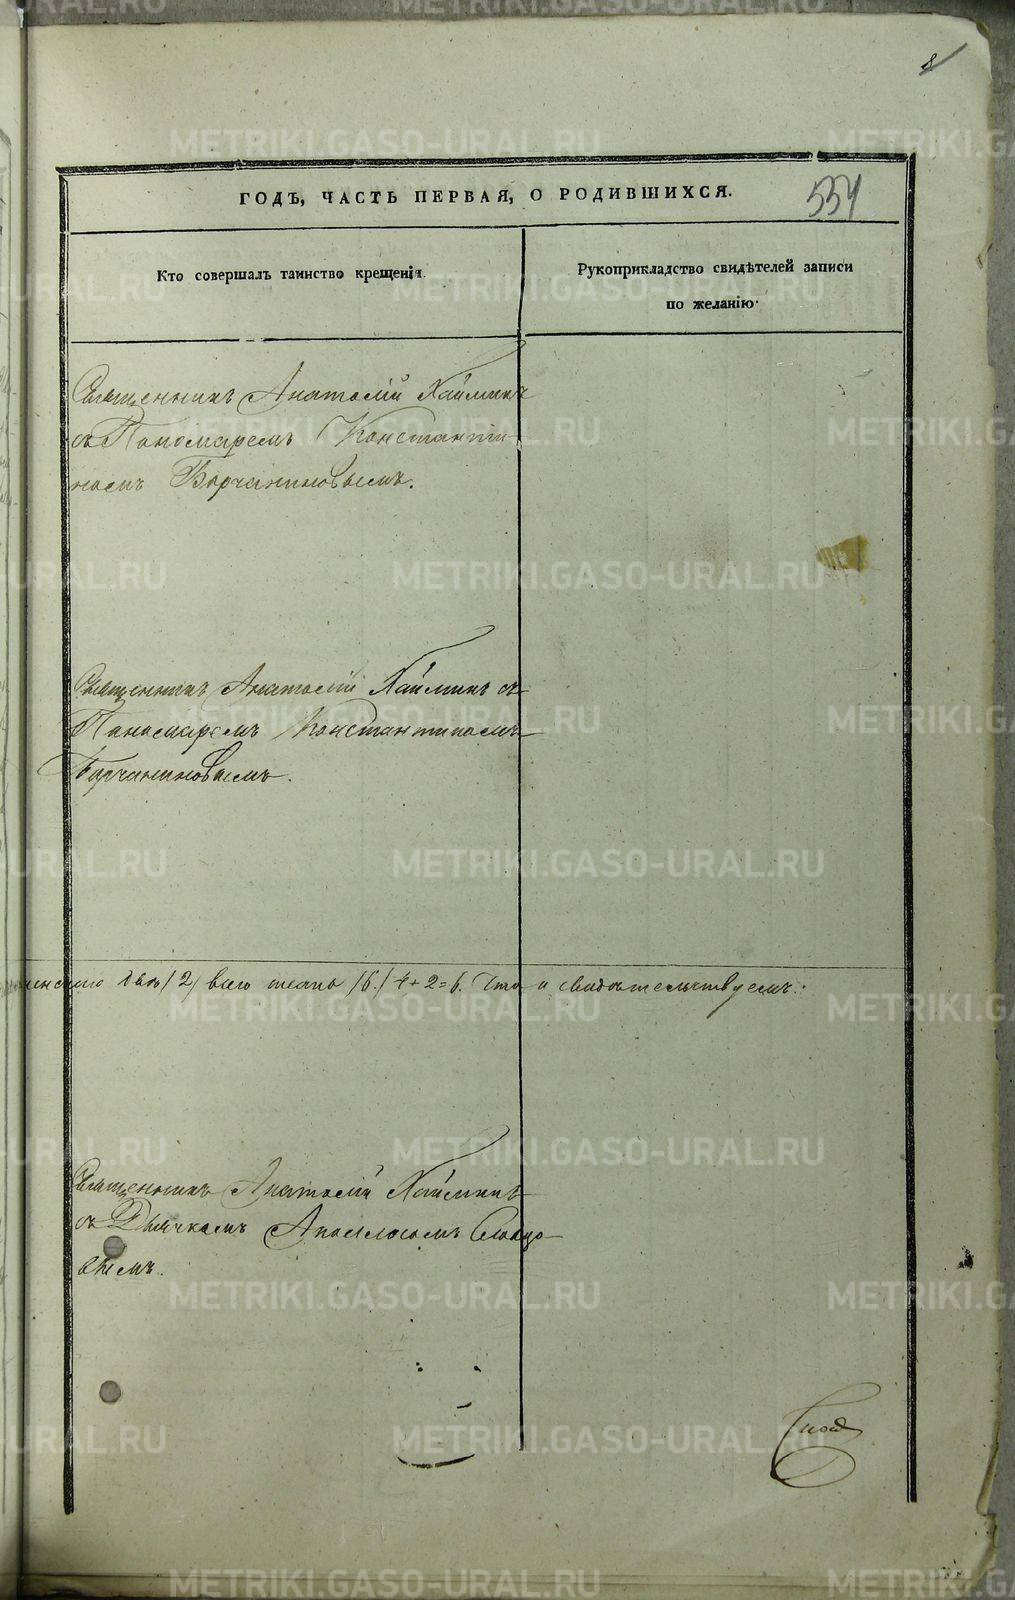 8
ГОДЪ, ЧАСТЬ ПЕРВАЯ, О РОДИВШИХСЯ.
554
Кто совершалъ таинство крещенія.
Рукоприкладство свидѣтелей записи
по желанію.
Священникъ Анатолій Хайминъ
съ Пономаремъ Константи-
номъ Борчаниновымъ.
Священникъ Анатолій Хайминъ съ
Пономаремъ Константиномъ
Борчаниновымъ.
два /2/ всего шесть /6./ 4+2=6. Что и свидѣтельствуемъ:
Священникъ Анатолій Хайминъ
съ Дьячкомъ Аполлосомъ Словцо-
вымъ.
METRIKI.GASO-URAL.RU